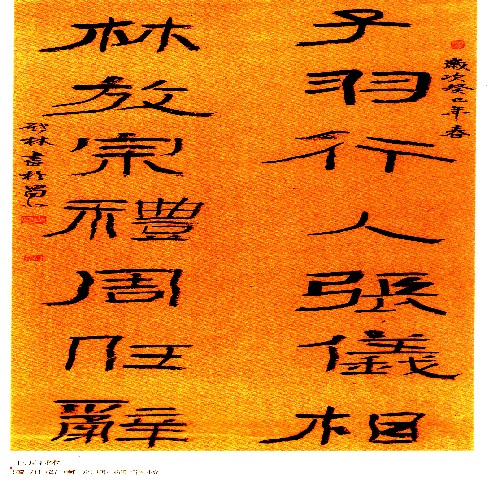 歲次癸巳年春
子羽行人張儀相
林放宗禮周任辭
林書於